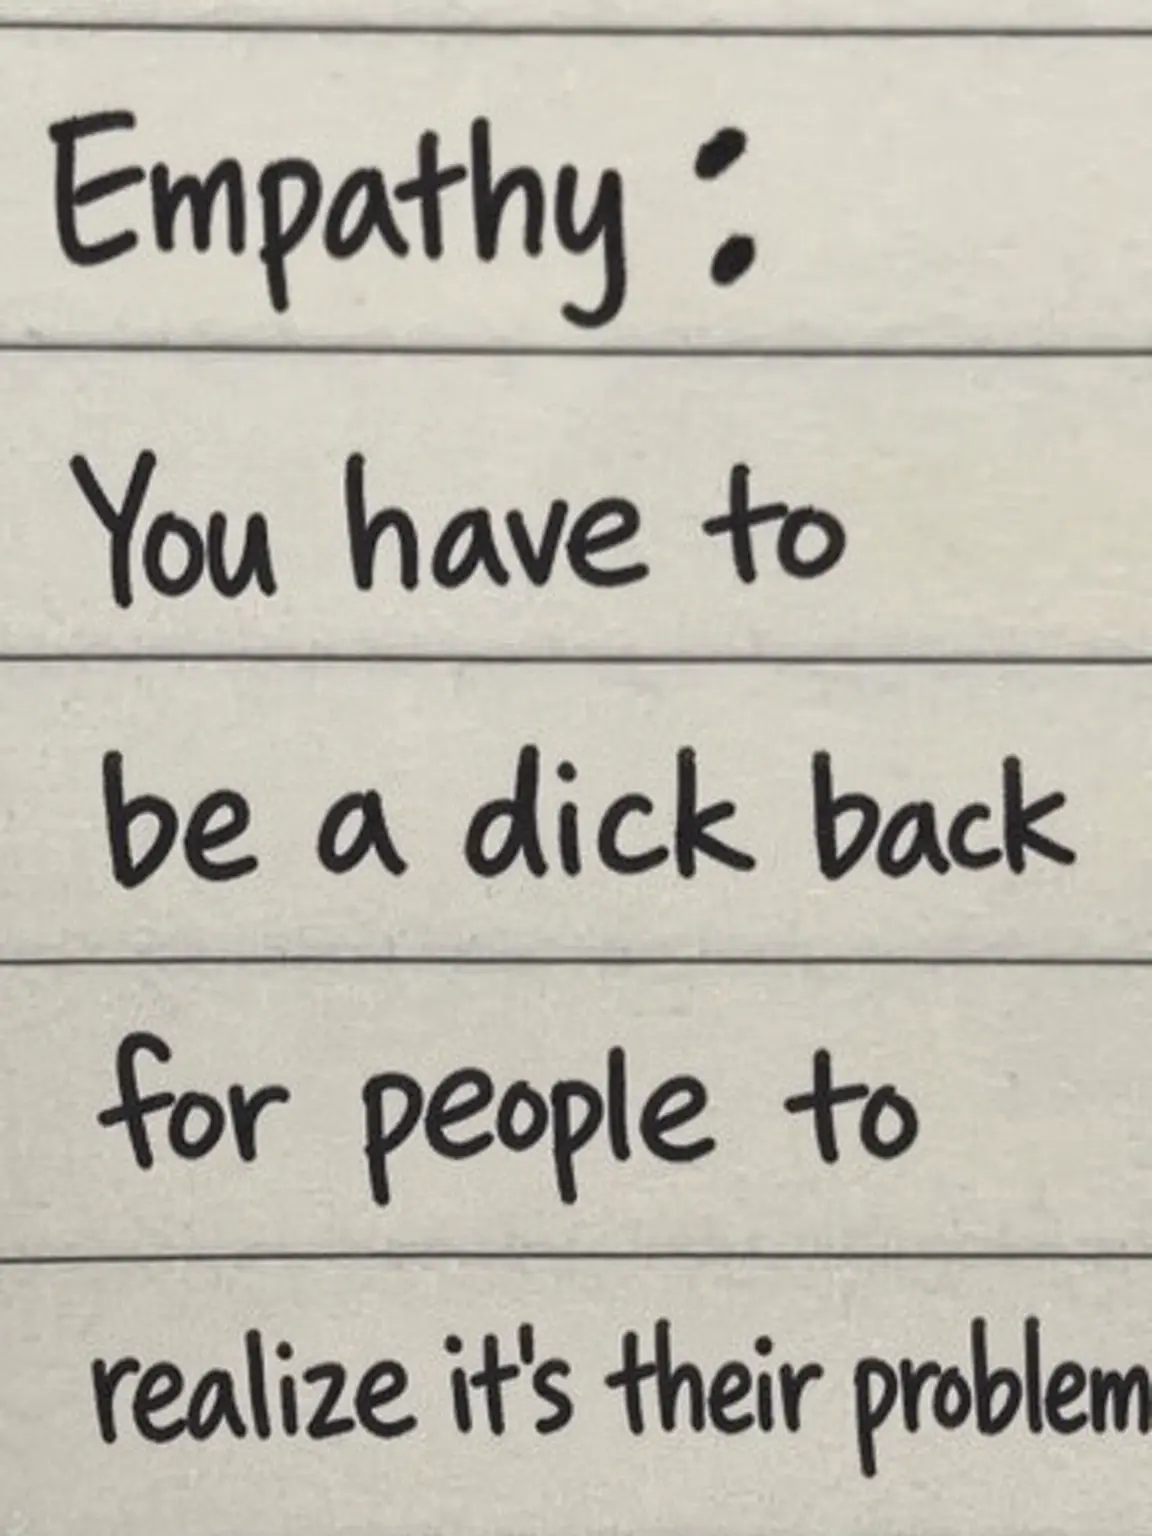 Empathy :
You have to
be a dick back
for people to
realize it's their problem